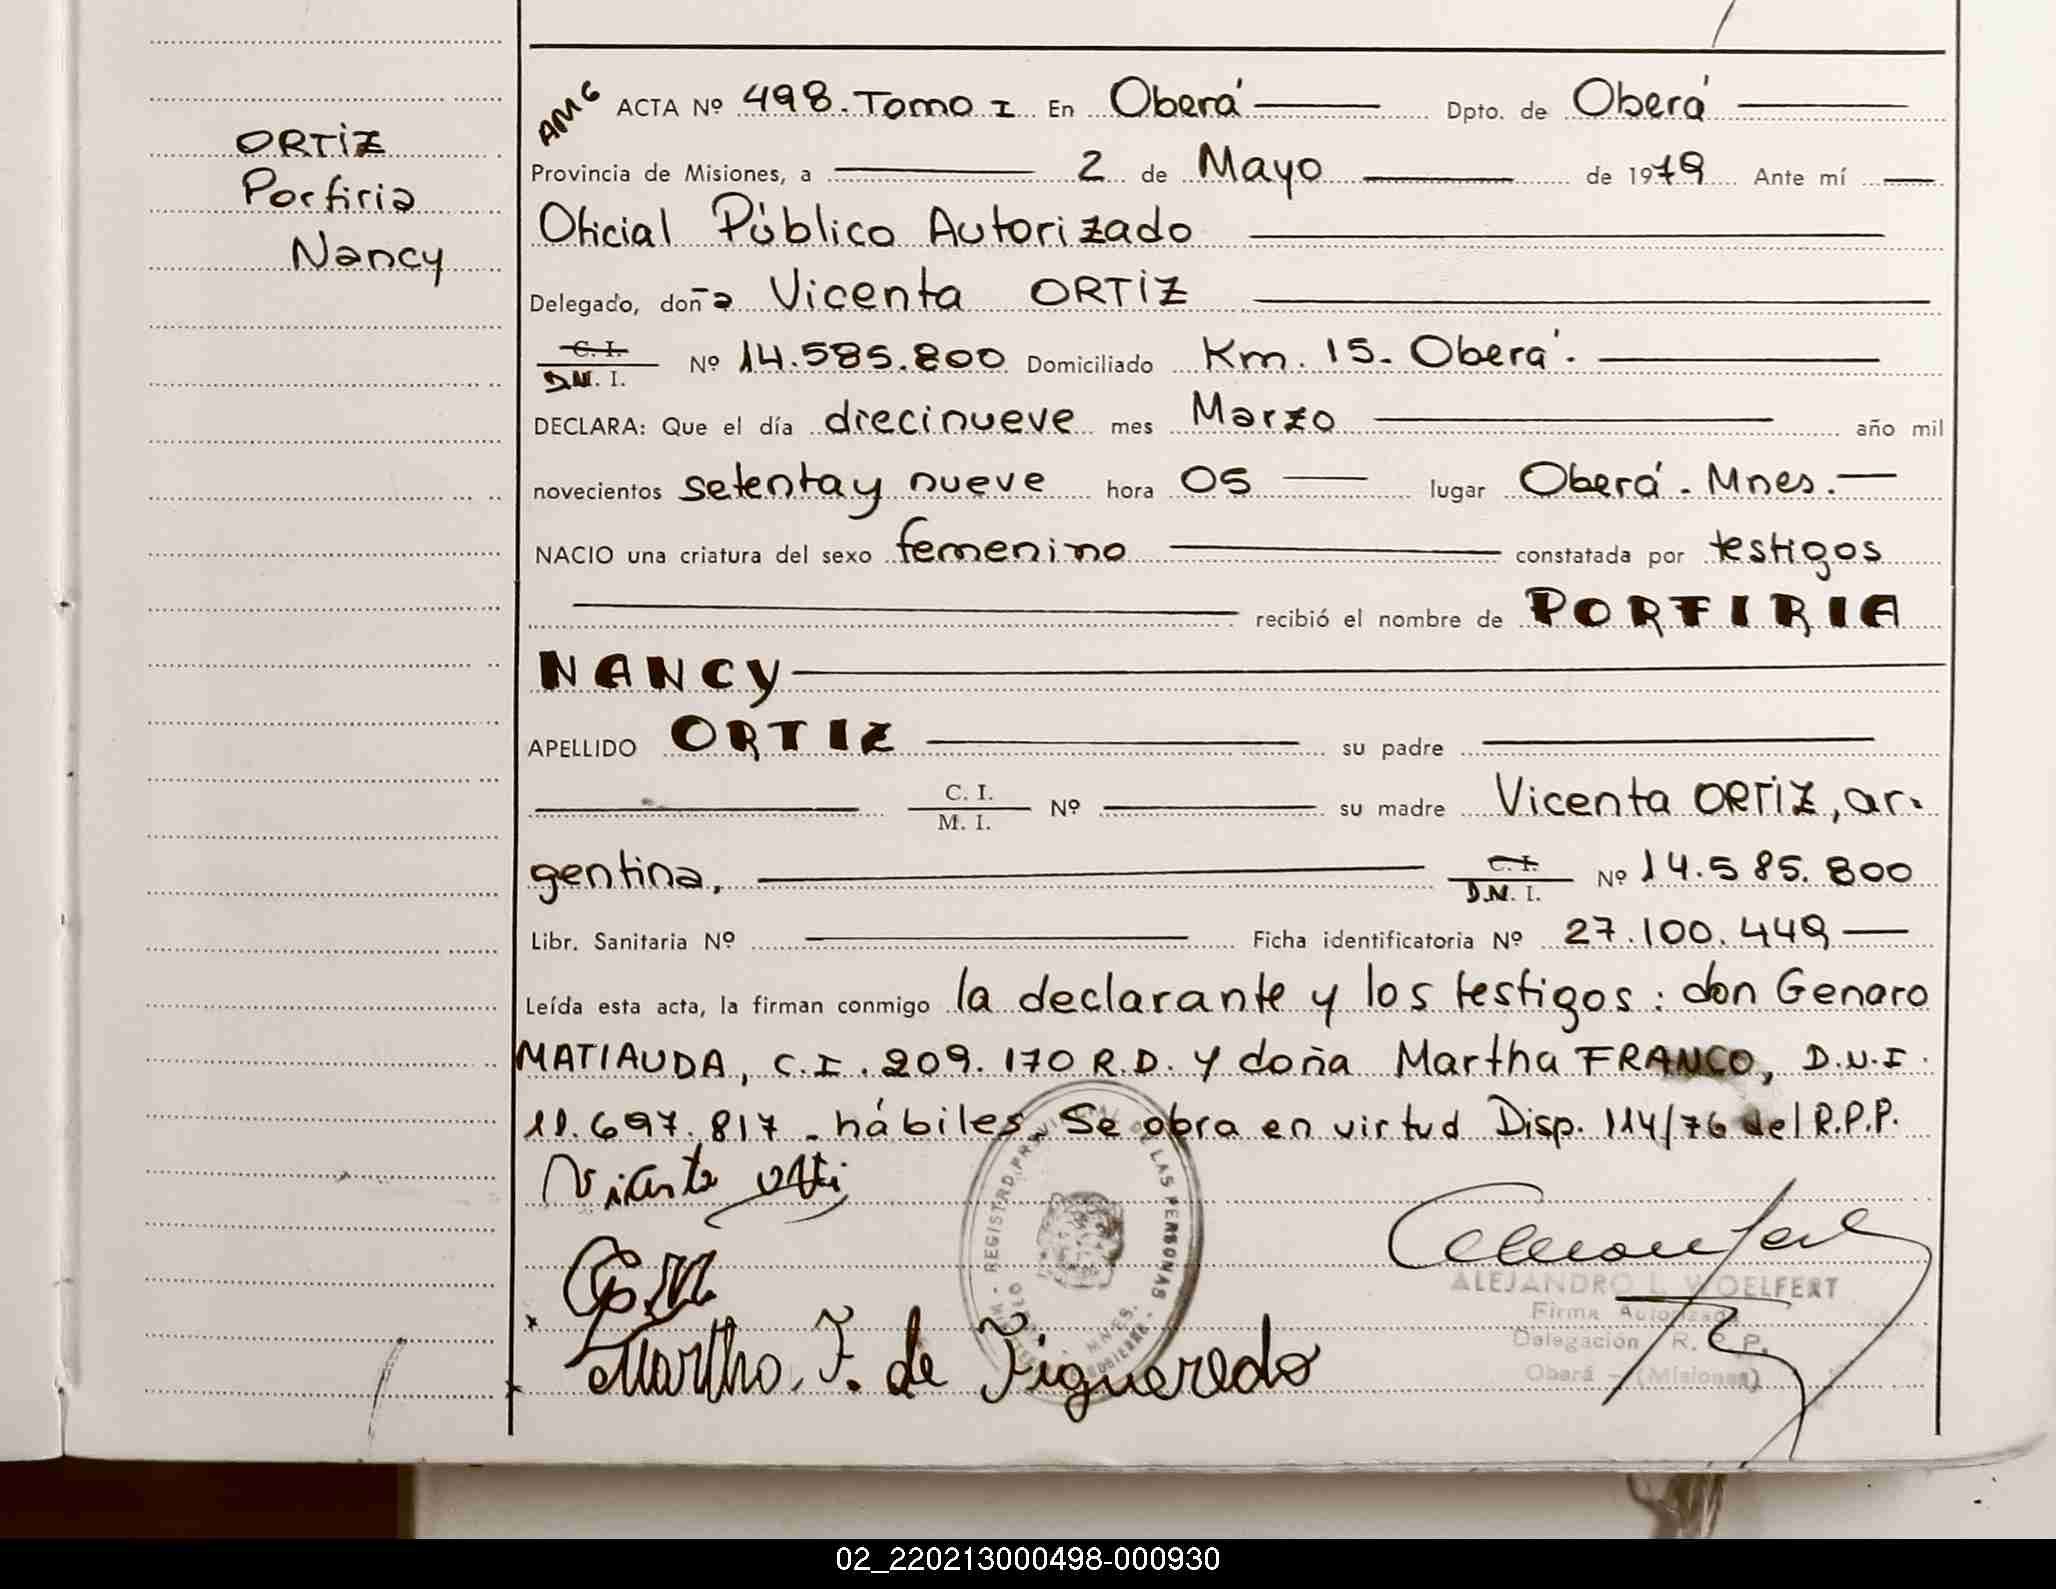 ORTIZ
Porfiria
Nancy
AMG ACTA Nº 498. Tomo I En Oberá Dpto. de Oberá
Provincia de Misiones, a 2 de Mayo de 1979 Ante mí
Oficial Público Autorizado
Delegado, doña Vicenta ORTIZ
C. I.
D.N. I. Nº 14.585.800 Domiciliado Km. 15. Oberá.
DECLARA: Que el día diecinueve mes Marzo año mil
novecientos setenta y nueve hora 05 lugar Oberá. Mnes.
NACIO una criatura del sexo femenino constatada por testigos
recibió el nombre de PORFIRIA
NANCY
APELLIDO ORTIZ su padre
C. I.
M. I. Nº su madre Vicenta ORTIZ, ar-
gentina, C. I.
D.N. I. Nº 14.585.800
Libr. Sanitaria Nº Ficha identificatoria Nº 27.100.449
Leída esta acta, la firman conmigo la declarante y los testigos: don Genaro
MATIAUDA, C.I. 209.170 R.D. y doña Martha FRANCO, D.N.I.
11.697.817 - hábiles. Se obra en virtud Disp. 114/76 del R.P.P.
Vicenta Ortiz
G.M.
Martha. F. de Figueredo
REGISTRO PROVINCIAL DE LAS PERSONAS
MNES.
ALEJANDRO L. WOELFERT
Firma Autorizada
Delegación R. P. P.
Oberá - (Misiones)
02_220213000498-000930